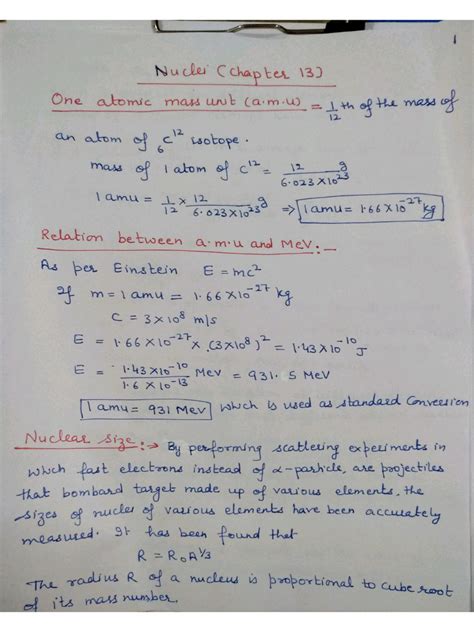 1
Nuclei (Chapter 13)
One atomic mass unit (a.m.u) = 1/12 th of the mass of
an atom of ₆C¹² isotope.
mass of 1 atom of C¹² = 12/6.023×10²³ g
1 amu = 1/12 × 12/6.023×10²³ g ⇒ 1 amu = 1.66×10⁻²⁷ kg
Relation between a.m.u and MeV:-
As per Einstein E = mc²
If m = 1 amu = 1.66×10⁻²⁷ kg
C = 3×10⁸ m/s
E = 1.66×10⁻²⁷ × (3×10⁸)² = 1.43×10⁻¹⁰ J
E = 1.43×10⁻¹⁰/1.6×10⁻¹³ MeV = 931.5 MeV
1 amu = 931 MeV which is used as standard Conversion
Nuclear size:→ By performing scattering experiments in
which fast electrons instead of α-particle, are projectiles
that bombard target made up of various elements, the
sizes of nuclei of various elements have been accurately
measured. It has been found that
R = R₀A^1/3
The radius R of a nucleus is proportional to cube root
of its mass number.